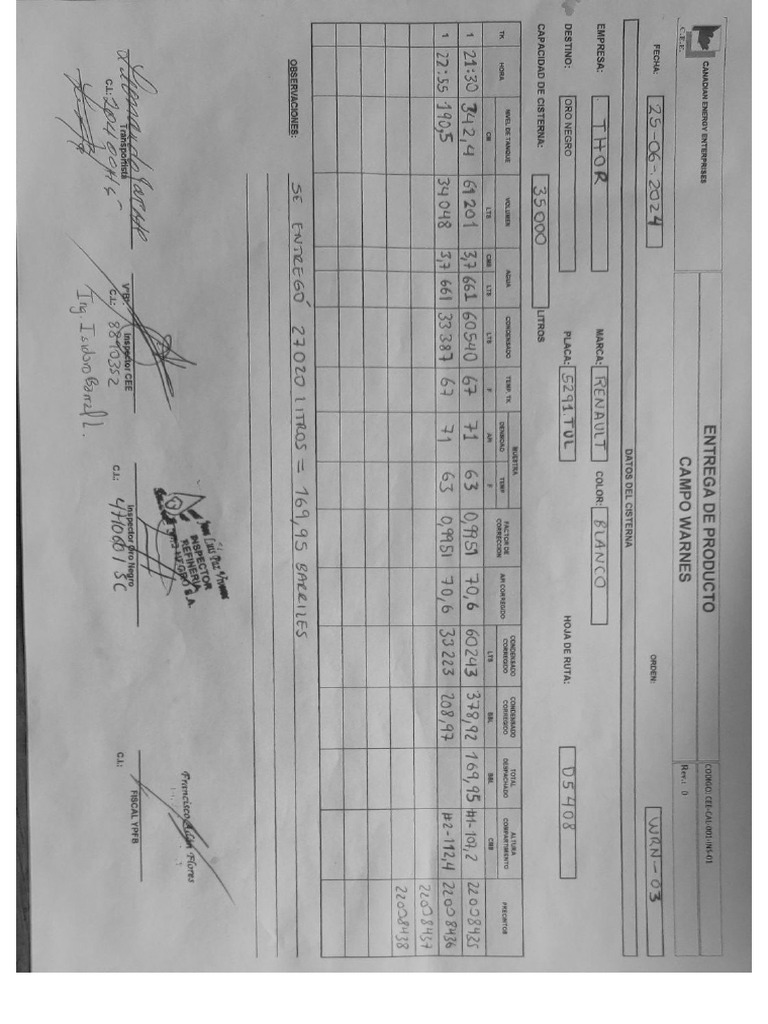 C.E.E.
CANADIAN ENERGY ENTERPRISES
ENTREGA DE PRODUCTO
CAMPO WARNES
CODIGO: CEE-CAL-001-INS-01
Rev.: 0
FECHA: 25-06-2024
ORDEN: WRN-03
DATOS DEL CISTERNA
EMPRESA: THOR MARCA: RENAULT COLOR: BLANCO
DESTINO: ORO NEGRO PLACA: 5291.TUL HOJA DE RUTA: D5408
CAPACIDAD DE CISTERNA: 35000 LITROS
TK HORA NIVEL DE TANQUE VOLUMEN AGUA CONDENSADO TEMP. TK MUESTRA FACTOR DE CORRECCION API CORREGIDO CONDENSADO CORREGIDO CONDENSADO CORREGIDO TOTAL DESPACHADO ALTURA COMPARTIMENTO PRECINTOR
DENSIDAD TEMP
CM LTS CMB LTS LTS F API F LTS BBL BBL CMB
1 21:30 342,4 61201 3,7 661 60540 67 71 63 0,9951 70,6 60243 378,92 169,95 #1-107,2 22008435
1 22:55 190,5 34048 3,7 661 33387 67 71 63 0,9951 70,6 33223 208,97 #2-112,4 22008436
22008437
22008438
OBSERVACIONES: SE ENTREGÓ 27020 LITROS = 169,95 BARRILES
Transportista
C.I.:
VºBº: Inspector CEE
C.I.: 8890352
Ing. Isidoro
INSPECTOR
REFINERIA
Inspector Oro Negro
C.I.: 4710601 SC
Francisco Flores
FISCAL YPFB
C.I.: